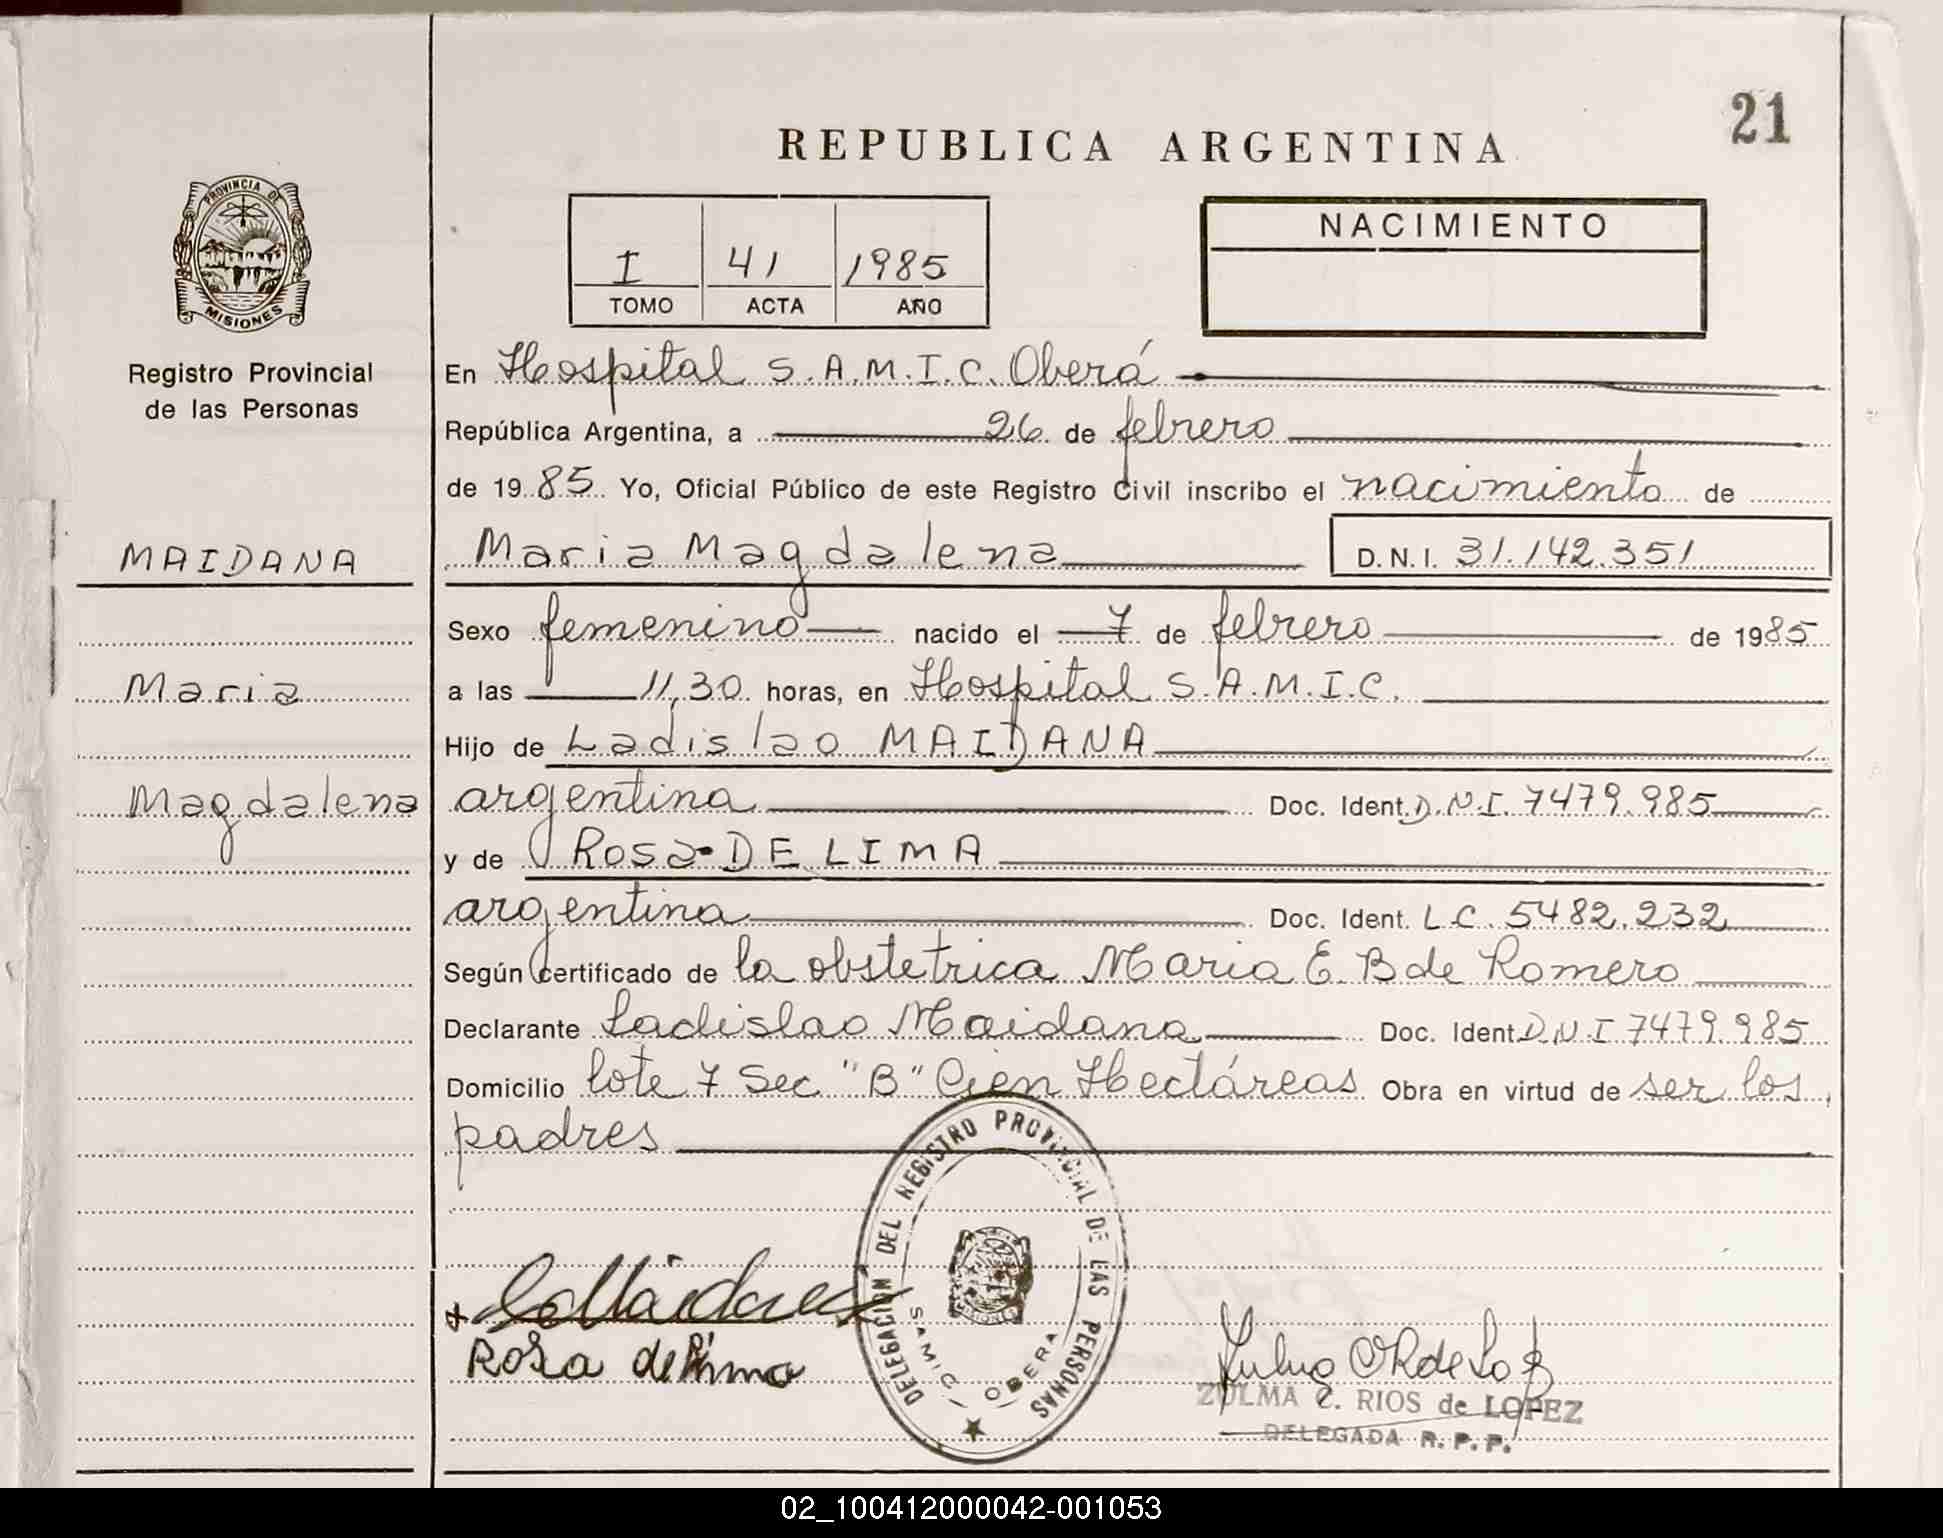 21
REPUBLICA ARGENTINA
PROVINCIA DE
MISIONES
Registro Provincial
de las Personas
I 41 1985
TOMO ACTA AÑO
NACIMIENTO
En Hospital S.A.M.I.C. Oberá
República Argentina, a 26 de febrero
de 1985 Yo, Oficial Público de este Registro Civil inscribo el nacimiento de
MAIDANA
Maria Magdalena D.N.I. 31.142.351
Sexo femenino nacido el 7 de febrero de 1985
Maria
a las 11,30 horas, en Hospital S.A.M.I.C.
Hijo de Ladislao MAIDANA
Magdalena
argentina Doc. Ident. D.N.I. 7479.985
y de Rosa DE LIMA
argentina Doc. Ident. L.C. 5482.232
Según certificado de la obstetrica Maria E. B de Romero
Declarante Ladislao Maidana Doc. Ident. D.N.I 7479.985
Domicilio lote 7 Sec "B" Cien Hectáreas Obra en virtud de ser los
padres
DELEGACION DEL REGISTRO PROVINCIAL DE LAS PERSONAS
SAMIC OBERA
Rosa de
ZULMA C. RIOS de LOPEZ
DELEGADA R.P.P.
02_100412000042-001053